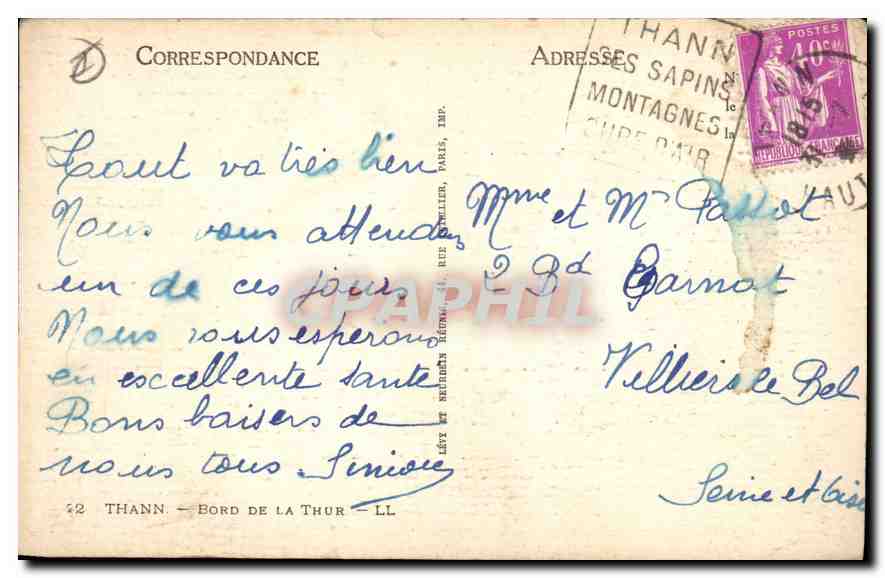 CORRESPONDANCE
Tout va très bien
Nous vous attendons
un de ces jours.
Nous vous esperons
en excellente santé
Bons baisers de
nous tous.
22 THANN. — BORD DE LA THUR — LL
LÉVY ET NEURDEIN RÉUNIS, 44, RUE LETELLIER, PARIS, IMP.
ADRESSE
THANN
SES SAPINS
MONTAGNES
CURE D'AIR
POSTES
40c
RÉPUBLIQUE FRANÇAISE
1815
HAUT
Mme et Mr Passot
2 Bd Carnot
Villiers le Bel
Seine et Oise
CPAPHIL